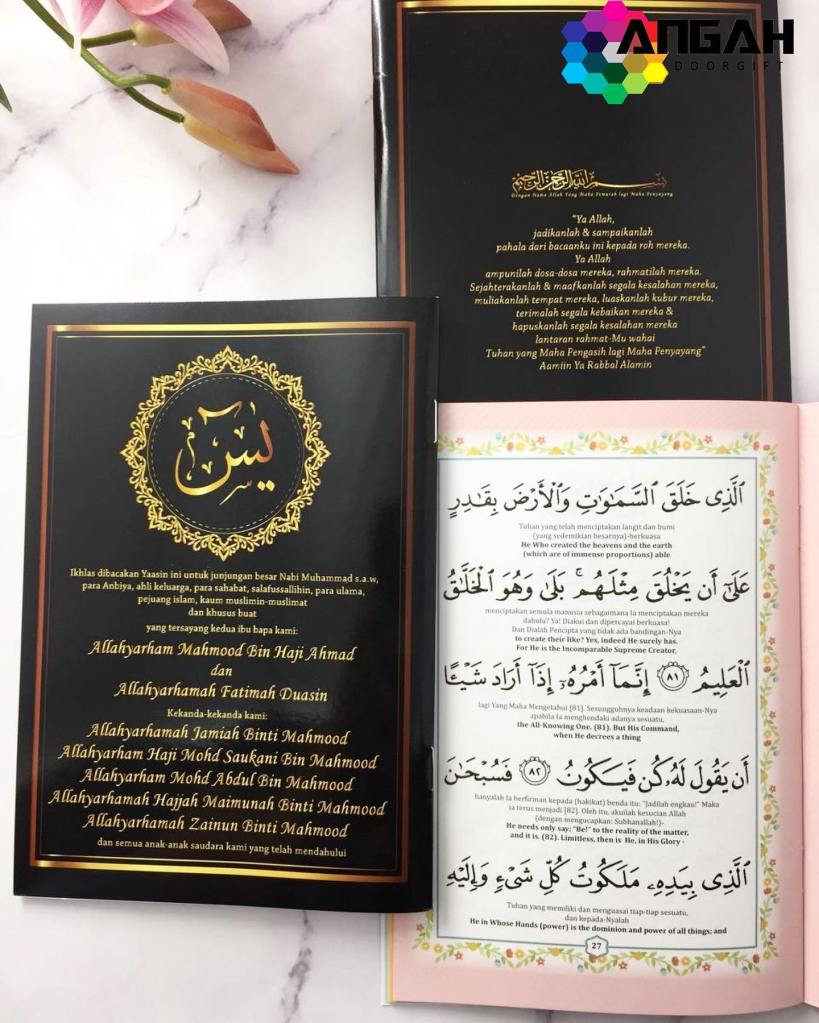 ANGAH
DOORGIFT
بسم الله الرحمن الرحيم
Dengan Nama Allah Yang Maha Pemurah lagi Maha Penyayang
“Ya Allah,
jadikanlah & sampaikanlah
pahala dari bacaanku ini kepada roh mereka.
Ya Allah
ampunilah dosa-dosa mereka, rahmatilah mereka.
Sejahterakanlah & maafkanlah segala kesalahan mereka,
muliakanlah tempat mereka, luaskanlah kubur mereka,
terimalah segala kebaikan mereka &
hapuskanlah segala kesalahan mereka
lantaran rahmat-Mu wahai
Tuhan yang Maha Pengasih lagi Maha Penyayang”
Aamiin Ya Rabbal Alamin
يس
Ikhlas dibacakan Yaasin ini untuk junjungan besar Nabi Muhammad s.a.w,
para Anbiya, ahli keluarga, para sahabat, salafussallihin, para ulama,
pejuang islam, kaum muslimin-muslimat
dan khusus buat
yang tersayang kedua ibu bapa kami:
Allahyarham Mahmood Bin Haji Ahmad
dan
Allahyarhamah Fatimah Duasin
Kekanda-kekanda kami:
Allahyarhamah Jamiah Binti Mahmood
Allahyarham Haji Mohd Saukani Bin Mahmood
Allahyarham Mohd Abdul Bin Mahmood
Allahyarhamah Hajjah Maimunah Binti Mahmood
Allahyarhamah Zainun Binti Mahmood
dan semua anak-anak saudara kami yang telah mendahului
ٱلَّذِى خَلَقَ ٱلسَّمَٰوَٰتِ وَٱلْأَرْضَ بِقَٰدِرٍ
Tuhan yang telah menciptakan langit dan bumi
(yang sedemikian besarnya)-berkuasa
He Who created the heavens and the earth
(which are of immense proportions) able
عَلَىٰٓ أَن يَخْلُقَ مِثْلَهُم ۚ بَلَىٰ وَهُوَ ٱلْخَلَّٰقُ
menciptakan semula manusia sebagaimana Ia menciptakan mereka
dahulu? Ya! Diakui dan dipercayai berkuasa!
Dan Dialah Pencipta yang tidak ada bandingan-Nya
to create their like? Yes, indeed He surely has.
For He is the Incomparable Supreme Creator,
ٱلْعَلِيمُ ٨١ إِنَّمَآ أَمْرُهُۥٓ إِذَآ أَرَادَ شَيْـًٔا
lagi Yang Maha Mengetahui [81]. Sesungguhnya keadaan kekuasaan-Nya
apabila Ia menghendaki adanya sesuatu,
the All-Knowing One. (81). But His Command,
when He decrees a thing
أَن يَقُولَ لَهُۥ كُن فَيَكُونُ ٨٢ فَسُبْحَٰنَ
hanyalah Ia berfirman kepada (hakikat) benda itu: "Jadilah engkau!" Maka
ia terus menjadi [82]. Oleh itu, akuilah kesucian Allah
(dengan mengucapkan: Subhanallah!)-
He needs only say: "Be!" to the reality of the matter,
and it is. (82). Limitless, then is He, in His Glory -
ٱلَّذِى بِيَدِهِۦ مَلَكُوتُ كُلِّ شَىْءٍ وَإِلَيْهِ
Tuhan yang memiliki dan menguasai tiap-tiap sesuatu,
dan kepada-Nyalah
He in Whose Hands (power) is the dominion and power of all things; and
27